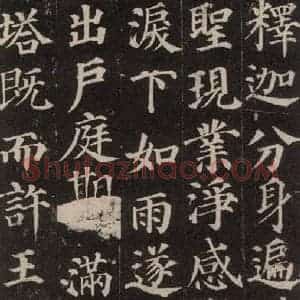 釋迦分身遍
聖現業淨感
淚下如雨遂
出戶庭期滿
塔既而許王
Shufaziliao.COM